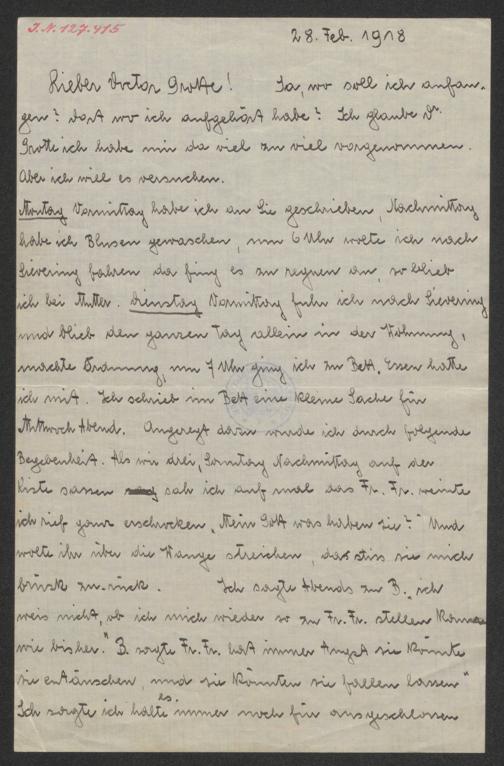 I.N. 127.415
28. Feb. 1918
Lieber Doctor Grotte! Ja, wo soll ich anfan-
gen? dort wo ich aufgehört habe? Ich glaube Dr.
Grotte ich habe mir da viel zu viel vorgenommen.
Aber ich will es versuchen.
Montag Vormittag habe ich an Sie geschrieben, Nachmittag
habe ich Blusen gewaschen, um 6 Uhr wolte ich nach
Sievering fahren da fing es zu regnen an, so blieb
ich bei Mutter. Dienstag Vormittag fuhr ich nach Sievering
und blieb den ganzen Tag allein in der Wohnung,
machte Ordnung, um 7 Uhr ging ich zu Bett, Essen hatte
ich mit. Ich schrieb im Bett eine kleine Sache für
Mittwoch Abend. Angeregt dazu wurde ich durch folgende
Begebenheit. Als wir drei, Sonntag Nachmittag auf der
Kiste sassen sah ich auf mal das Fr. Fr. weinte
ich rief ganz erschrocken „Mein Gott was haben sie?" Und
wolte ihr über die Wange streichen, da stiss sie mich
brüsk zu-rück. Ich sagte Abends zu B. „ich
weis nicht, ob ich mich wieder so zu Fr. Fr. stellen kann
wie bisher." B. sagte Fr. Fr. hat immer Angst sie könnte
sie entäuschen, und sie könnten sie fallen lassen"
Ich sagte ich halte es immer noch für ausgeschlossen